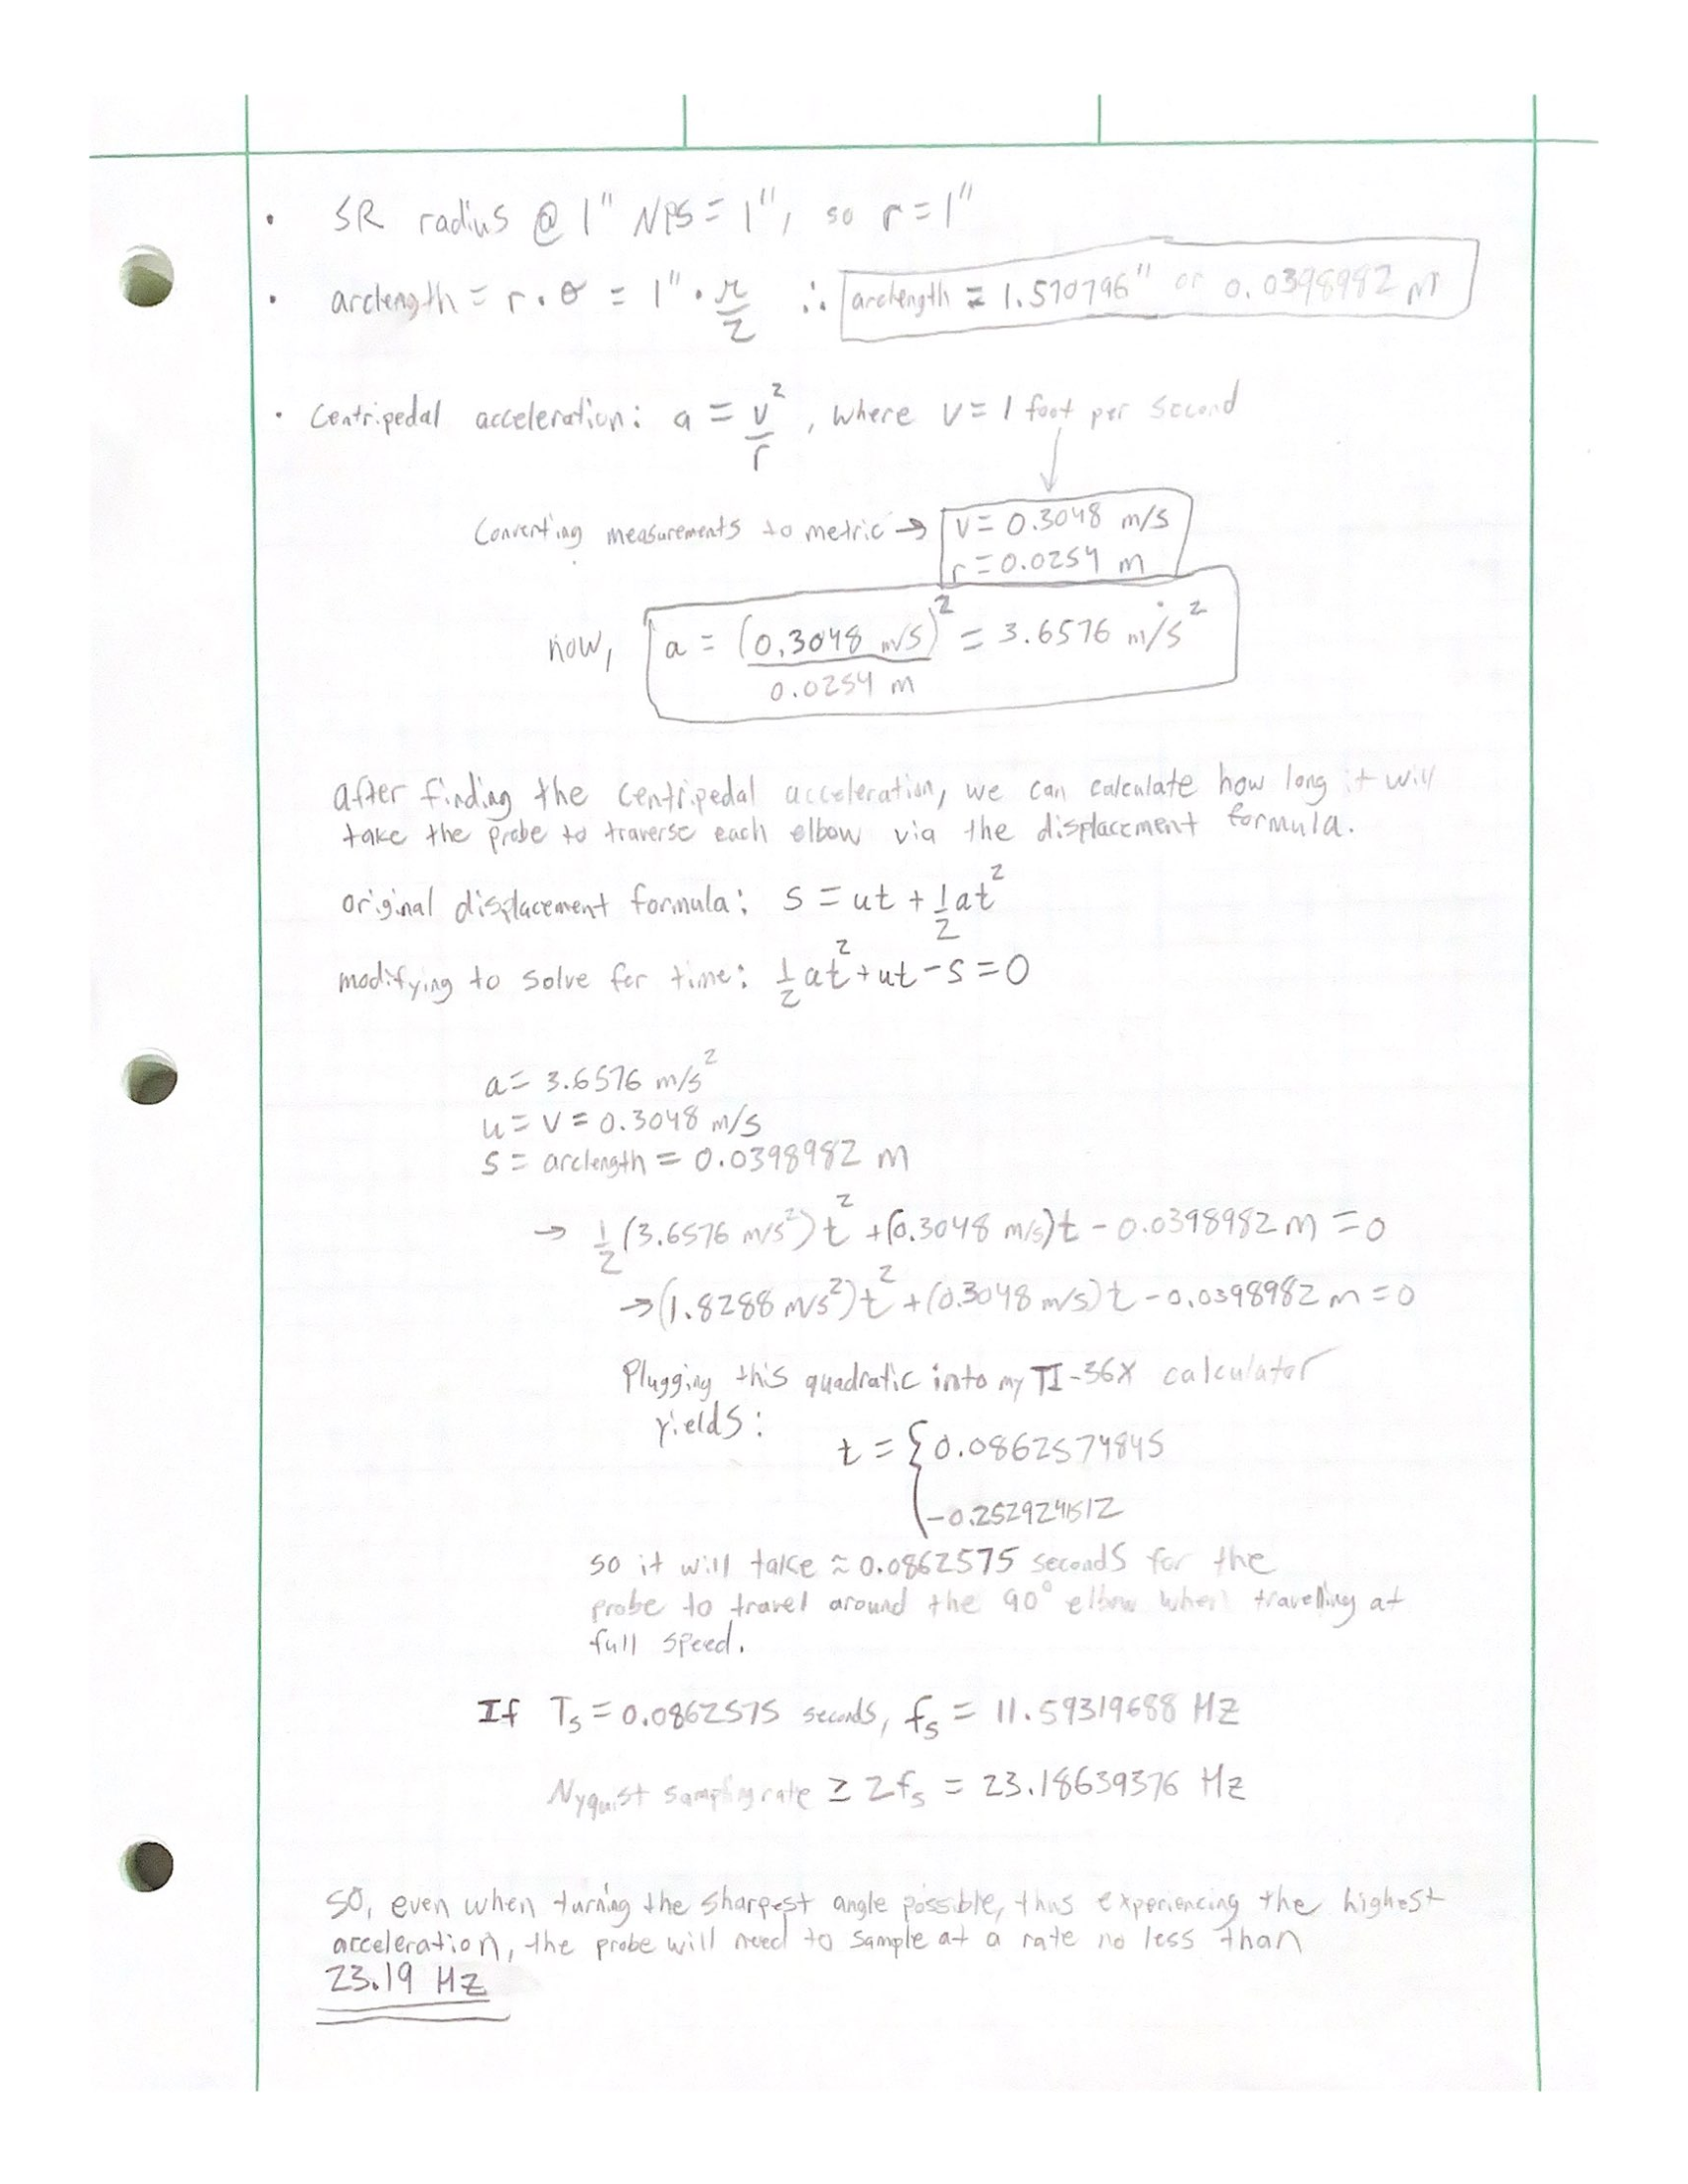 • SR radius @ 1" NPS = 1", so r = 1"
• arclength = r · θ = 1" · π/2 ∴ arclength = 1.570796" or 0.0398982 m
• Centripedal acceleration: a = v²/r, where v = 1 foot per second
Converting measurements to metric → v = 0.3048 m/s
r = 0.0254 m
now, a = (0.3048 m/s)²/0.0254 m = 3.6576 m/s²
after finding the centripedal acceleration, we can calculate how long it will
take the probe to traverse each elbow via the displacement formula.
original displacement formula: s = ut + 1/2 at²
modifying to solve for time: 1/2 at² + ut - s = 0
a = 3.6576 m/s²
u = v = 0.3048 m/s
s = arclength = 0.0398982 m
→ 1/2 (3.6576 m/s²) t² + (0.3048 m/s)t - 0.0398982 m = 0
→ (1.8288 m/s²) t² + (0.3048 m/s) t - 0.0398982 m = 0
Plugging this quadratic into my TI-36X calculator
yields:
t = { 0.0862574845
-0.2529241512
so it will take ≈ 0.0862575 seconds for the
probe to travel around the 90° elbow when travelling at
full speed.
If Ts = 0.0862575 seconds, fs = 11.59319688 Hz
Nyquist sampling rate ≥ 2fs = 23.18639376 Hz
So, even when turning the sharpest angle possible, thus experiencing the highest
acceleration, the probe will need to sample at a rate no less than
23.19 Hz